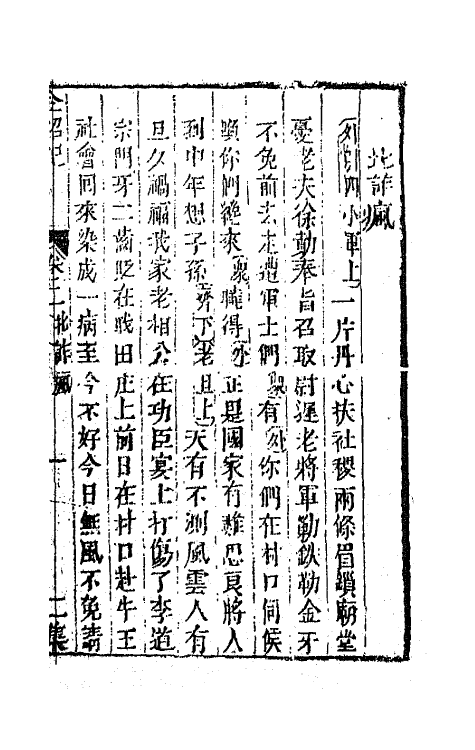 北詐瘋
外引四小軍上一片丹心扶社稷兩條眉鎖廟堂
憂老夫徐勣奉旨召取尉遲老將軍勒鉄勒金牙
不免前去走遭軍士們衆有外你們在村口伺候
顕你們轉來衆曉得外正是國家有難思良將人
到中年想子孫齊下老旦上天有不測風雲人有
旦夕禍福我家老相公在功臣宴上打傷了李道
宗門牙二齒貶在職田庄上前日在村口赴牛王
社會回來染成一病至今不好今日無風不免請
卷二 北詐瘋 一 二集